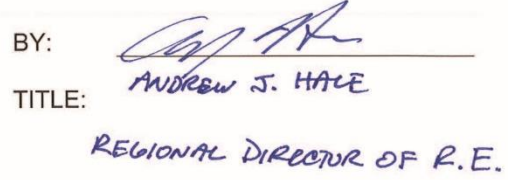 BY:
ANDREW J. HALE
TITLE:
REGIONAL DIRECTOR OF R.E.